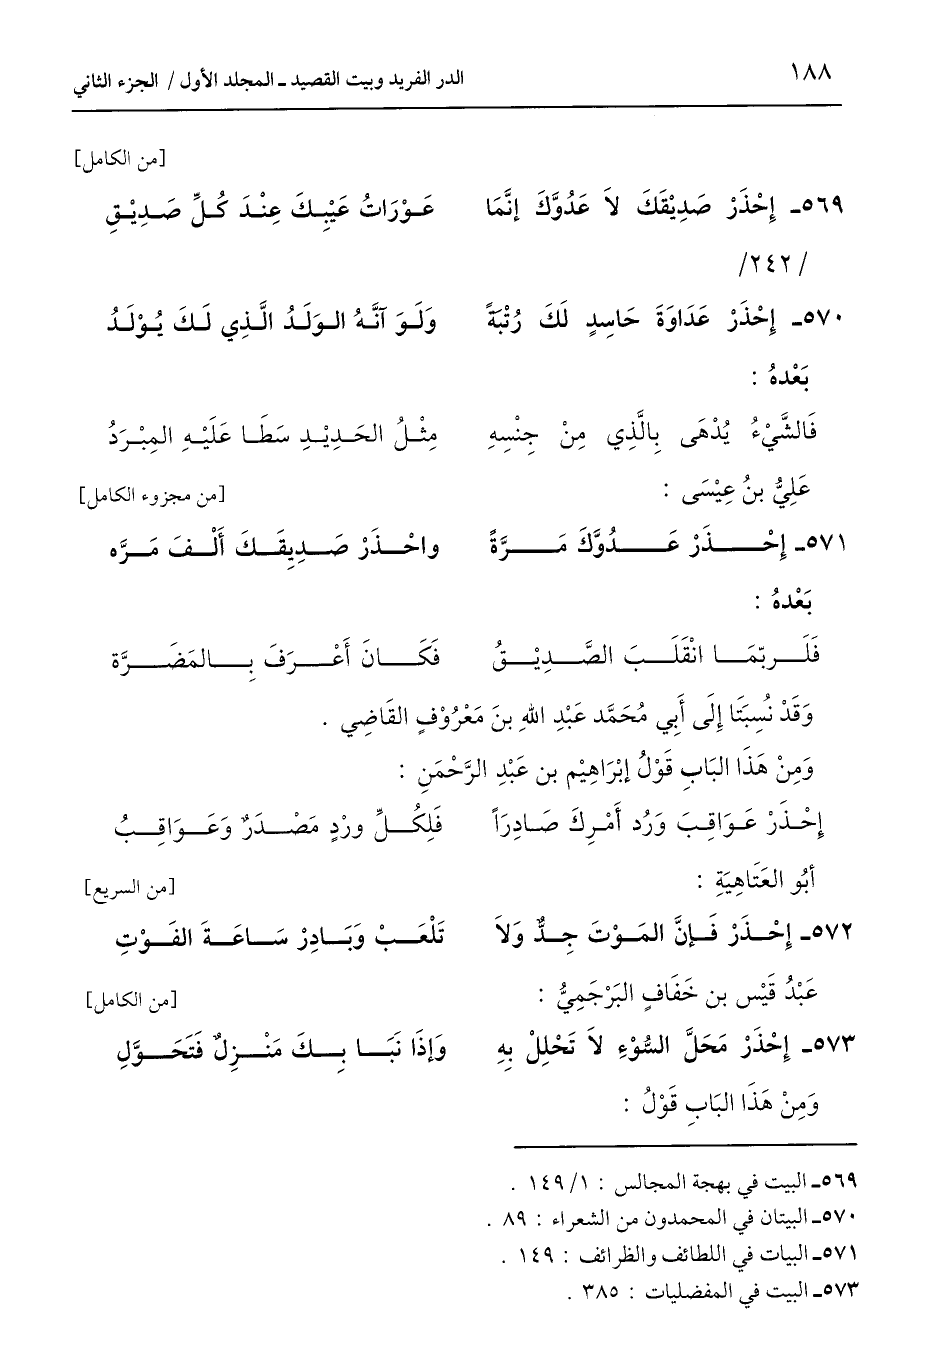 ١٨٨ الدر الفريد وبيت القصيد ـ المجلد الأول / الجزء الثاني
[من الكامل]
٥٦٩ـ إِحْذَرْ صَدِيْقَكَ لاَ عَدُوَّكَ إنَّمَا عَوْرَاتُ عَيْبِكَ عِنْدَ كُلِّ صَدِيْقِ
/٢٤٢/
٥٧٠ـ إِحْذَرْ عَدَاوَةَ حَاسِدٍ لَكَ رُتْبَةً وَلَوَ آنَّهُ الوَلَدُ الَّذِي لَكَ يُوْلَدُ
بَعْدهُ :
فَالشَّيْءُ يُدْهَى بِالَّذِي مِنْ جِنْسِهِ مِثْلُ الحَدِيْدِ سَطَا عَلَيْهِ المِبْرَدُ
عَلِيُّ بنُ عِيْسَى : [من مجزوء الكامل]
٥٧١ـ إِحْذَرْ عَدُوَّكَ مَرَّةً واحْذَرْ صَدِيقَكَ أَلْفَ مَرَّه
بَعْدهُ :
فَلَربّمَا انْقَلَبَ الصَّدِيْقُ فَكَانَ أَعْرَفَ بِالمَضَرَّة
وَقَدْ نُسِبَتَا إِلَى أَبِي مُحَمَّد عَبْدِ اللهِ بنَ مَعْرُوْفٍ القَاضِي .
وَمِنْ هَذَا البَابِ قَوْلُ إبْرَاهِيْم بن عَبْدِ الرَّحْمَنِ :
إحْذَرْ عَوَاقِبَ وَرُد أَمْرِكَ صَادِرَاً فَلِكُلِّ ورْدٍ مَصْدَرٌ وَعَوَاقِبُ
أَبُو العَتَاهِيَةِ : [من السريع]
٥٧٢ـ إِحْذَرْ فَإنَّ المَوْتَ جِدٌّ وَلاَ تَلْعَبْ وَبَادِرْ سَاعَةَ الفَوْتِ
عَبْدُ قَيْس بن خَفَافٍ البَرْجَمِيُّ : [من الكامل]
٥٧٣ـ إِحْذَرْ مَحَلَّ السُّوْءِ لاَ تَحْلِلْ بِهِ وَإذَا نَبَا بِكَ مَنْزِلٌ فَتَحَوَّلِ
وَمِنْ هَذَا البَابِ قَوْلُ :
٥٦٩ـ البيت في بهجة المجالس : ١/ ١٤٩ .
٥٧٠ـ البيتان في المحمدون من الشعراء : ٨٩ .
٥٧١ـ البيات في اللطائف والظرائف : ١٤٩ .
٥٧٣ـ البيت في المفضليات : ٣٨٥ .